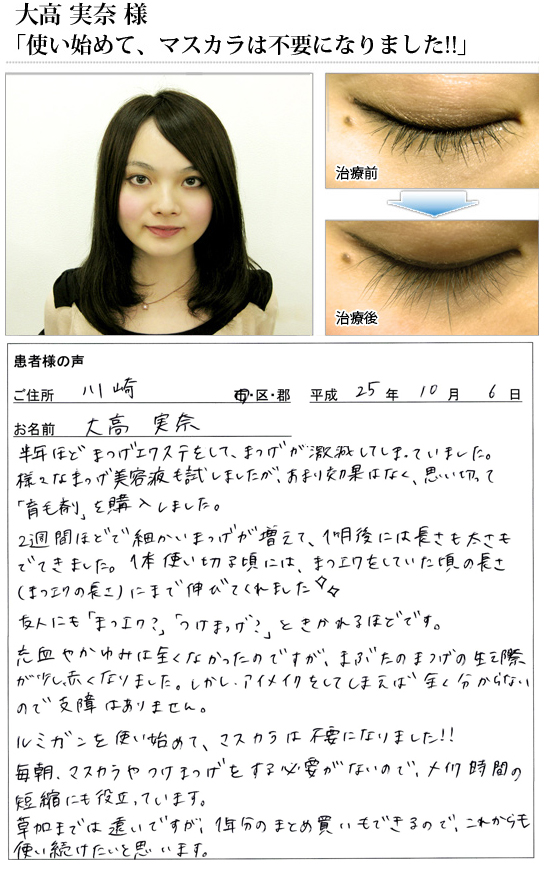 大高 実奈 様
「使い始めて、マスカラは不要になりました!!」
治療前
治療後
患者様の声
ご住所 川崎 市・区・郡 平成 25 年 10 月 6 日
お名前 大高 実奈
半年ほどまつげエクステをして、まつげが激減してしまっていました。
様々なまつげ美容液も試しましたが、あまり効果はなく、思い切って
「育毛剤」を購入しました。
2週間ほどで細かいまつげが増えて、1ヶ月後には長さも太さも
でてきました。1本使い切る頃には、まつエクをしていた頃の長さ
(まつエクの長さ)にまで伸びてくれました
友人にも「まつエク?」「つけまつげ?」ときかれるほどです。
充血やかゆみは全くなかったのですが、まぶたのまつげの生え際
が少し赤くなりました。しかし、アイメイクをしてしまえば全く分からない
ので支障はありません。
ルミガンを使い始めて、マスカラは不要になりました!!
毎朝、マスカラやつけまつげをする必要がないので、メイク時間の
短縮にも役立っています。
草加までは遠いですが、1年分のまとめ買いもできるので、これからも
使い続けたいと思います。